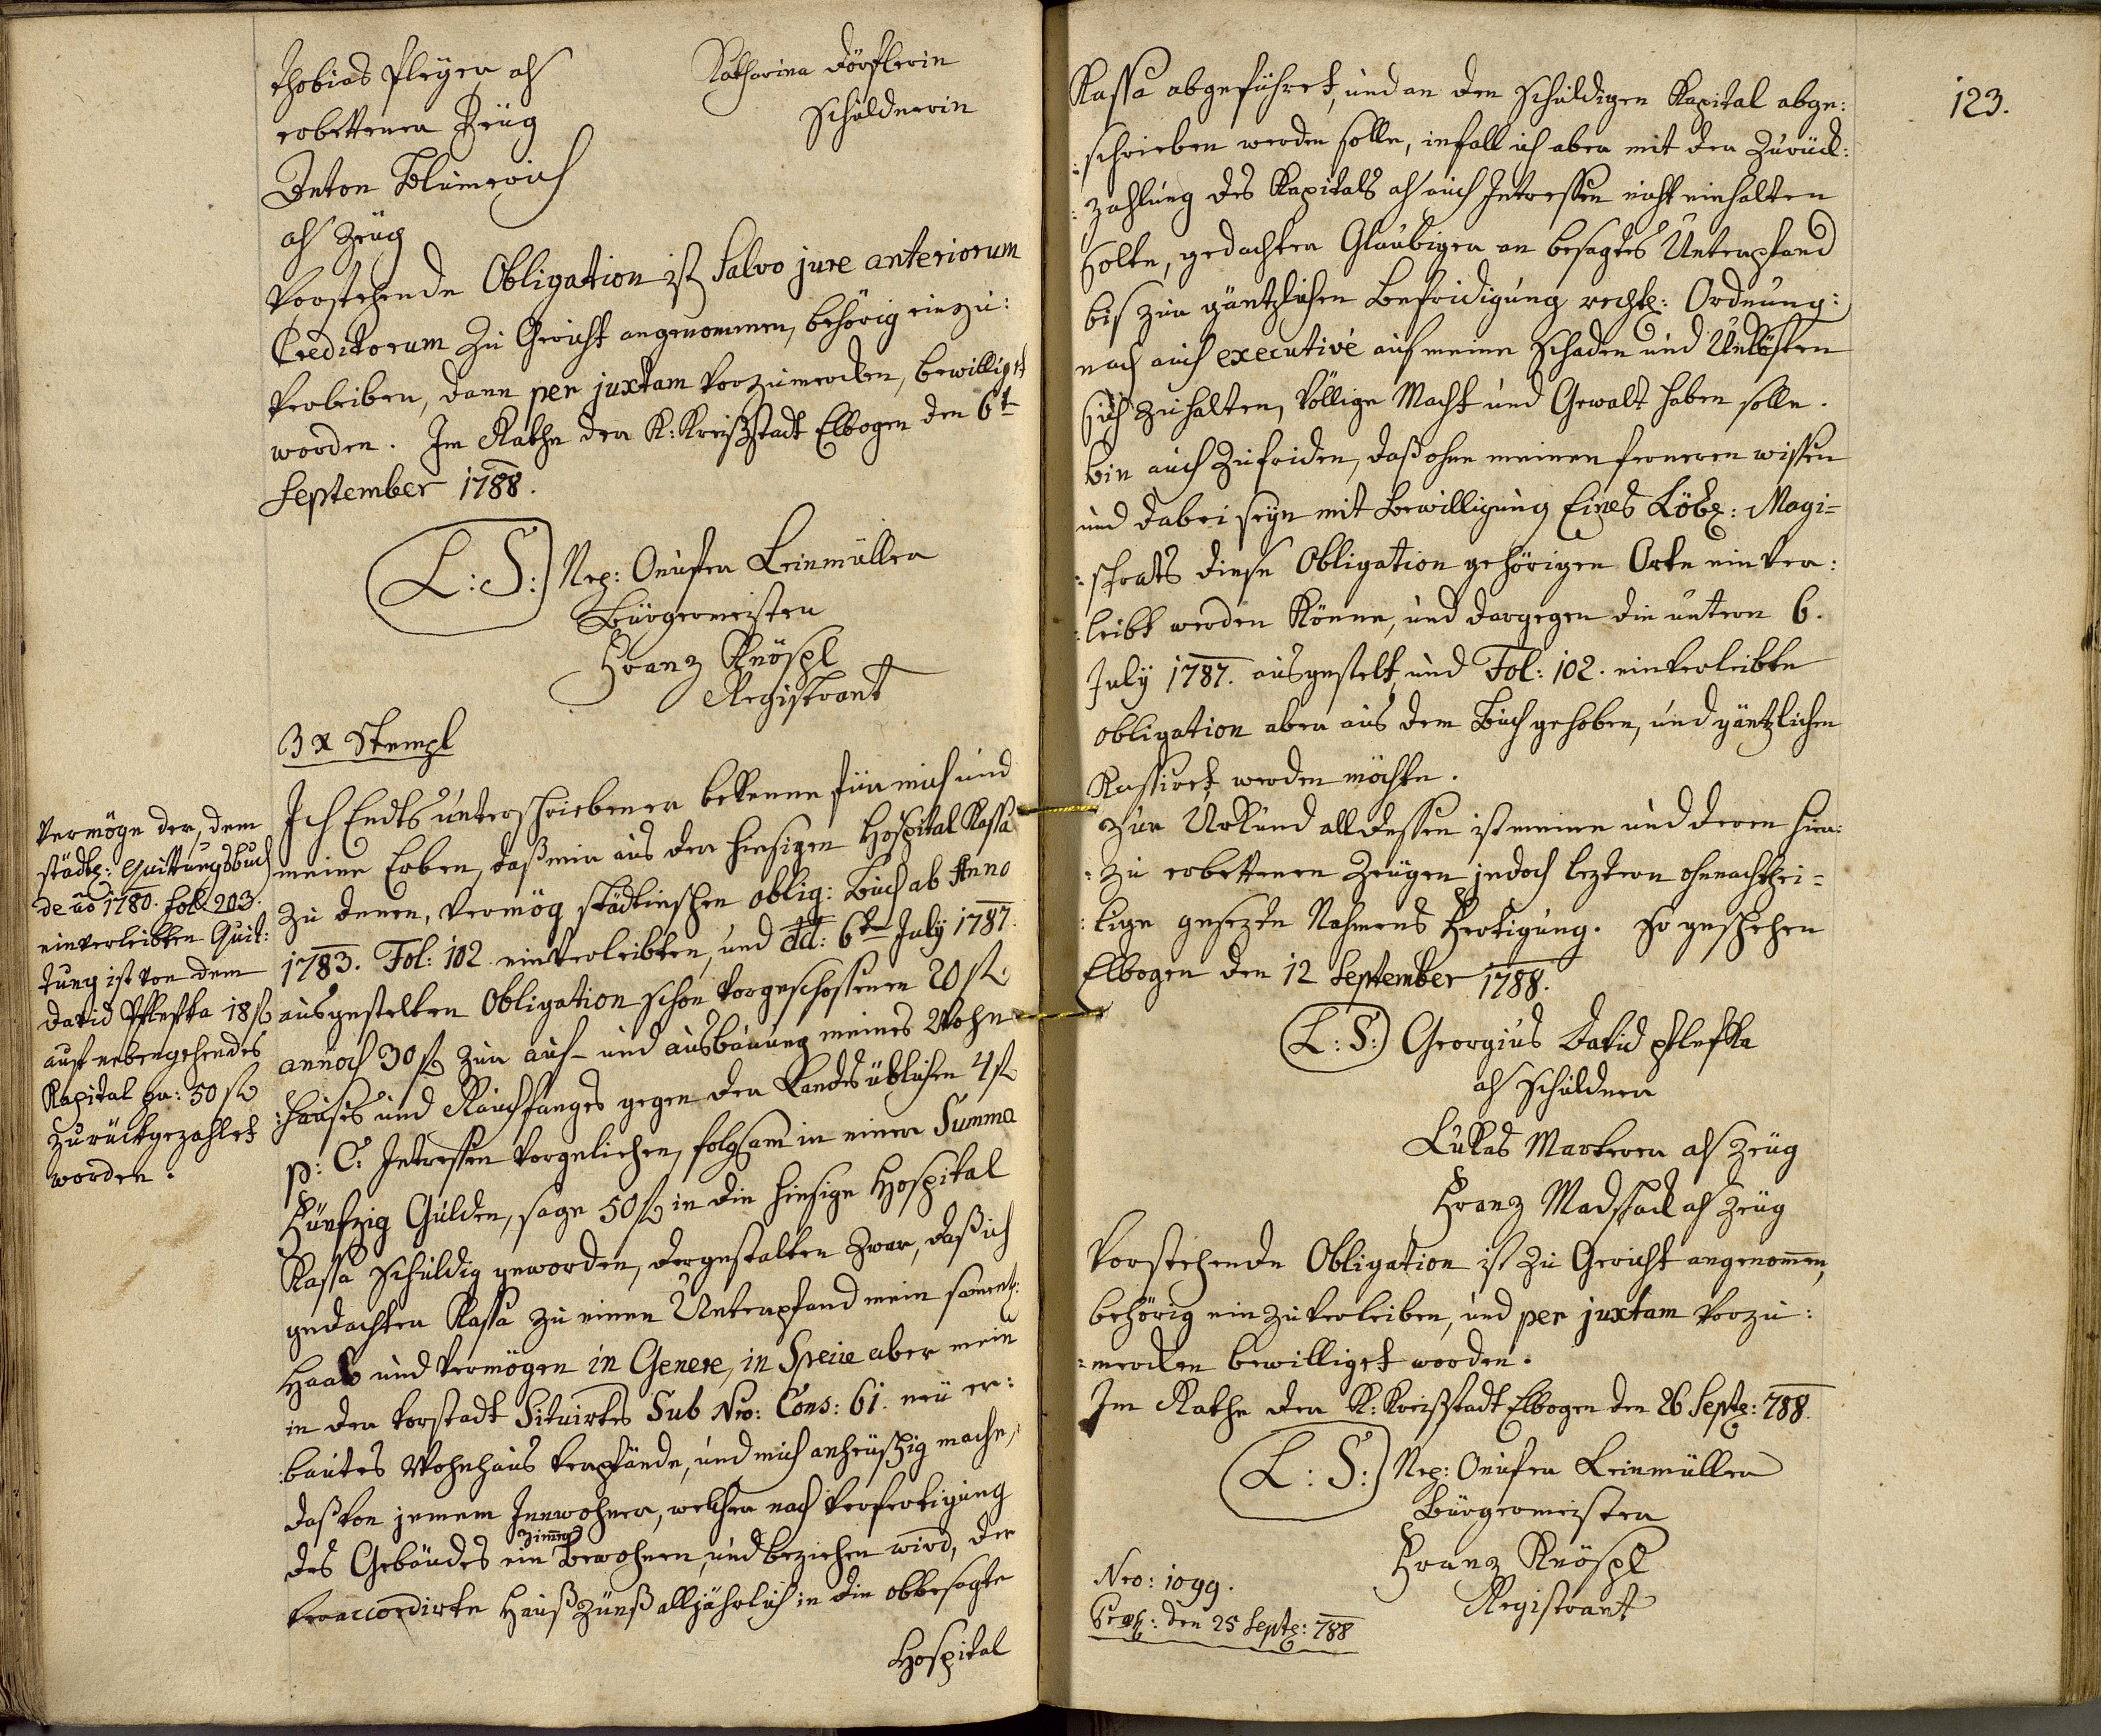 Thobias Pleyer als
erbettener Zeüg
Anton Blumerich
als Zeüg
Katharina Dörflerin
Schuldnerin
Vorstehende Obligation ist Salvo jure anteriorum
Creditorum zu Gericht angenommen, behörig einzu:
verleiben, dann per juxtam vorzumerken, bewilliget
worden. Im Rathe der K: Kreißstadt Elbogen den 6t
September 1788.
L: S: Nep: Onufer Leinmüller
Bürgermeister
Franz Knöspl
Registrant
3 x Stempl
Ich Endts unterschriebener bekenne für mich und
meine Erben, daß mir aus der hiesigen Hospital Kassa
zu denen, vermög städtischen oblig: Buch ab Anno
1783. Fol: 102 einverleibten, und dd: 6ten July 1787.
ausgestelten Obligation schon vorgeschossenen 20 fl
annoch 30 fl zur auf- und ausbauung meines Wohn
:hauses und Rauchfanges gegen der Landesüblichen 4 fl
p: C: Intressen vorgeliehen, folgsam in einer Summa
Fünfzig Gulden, sage 50 fl in die hiesige Hospital
Kassa schuldig geworden, dergestalten zwar, daß ich
gedachter Kassa zu einen Unterpfand mein sament:
Haab und Vermögen in Genere, in Specie aber mein
in der Vorstadt Situirtes Sub Nro: Cons: 61. neü er:
:bautes Wohnhaus verpfände, und mich anheüschig mache,
daß von jenem Innwohner, welcher nach Verfertigung
Zimmer
des Gebäudes ein bewohnen, und beziehen wird, der
veraccordirte Hauß Zünß alljährlich in die obbesagte
Hospital
Vermöge der, dem
städt: Quittungsbuch
de ao 1780. fol. 203.
einverleibten Quit:
tung ist von dem
David Pflefka 18 fl
auf nebengehendes
Kapital pr: 50 fl
zurückgezahlet
worden.
123.
Kassa abgeführet, und an den schuldigen Kapital abge:
:schrieben werden solle, infall ich aber mit der Zurück:
:zahlung des Kapitals als auch Intressen nicht einhalten
solte, gedachter Glaubiger an besagtes Unterpfand
bis zur gäntzlichen Befridigung recht: Ordnung:
nach auch executivé auf meine Schaden und Unkösten
sich zuhalten, völlige Macht und Gewalt haben solle.
bin auch zufriden, daß ohne meinen ferneren wissen
und dabei seyn mit Bewilligung Eines Löbl: Magi=
:strats diese Obligation gehörigen Orte einver:
:leibt werden könne, und dargegen die unterm 6.
July 1787. ausgestelt, und Fol: 102. einverleibte
obligation aber aus dem Buch gehoben, und gäntzlichen
Kassiret werden möchte.
Zur Urkund all dessen ist meine und deren hier:
:zu erbettenen Zeügen jedoch leztern ohnnachthei=
:lige gesezte Nahmens Fertigung. So geschehen
Elbogen den 12 September 1788.
L: S: Georgius David Pflefka
als Schuldner
Lukas Markerer als Zeüg
Franz Madstadl als Zeüg
Vorstehende Obligation ist zu Gericht angenomen,
behörig einzuverleiben, und per juxtam vorzu:
:merken bewilliget worden.
Im Rathe der K: Kreißstadt Elbogen den 26 Sept: 788.
L: S: Nep: Onufer Leinmüller
Bürgermeister
Franz Knöspl
Registrant
Nro: 1099.
den 25 Sept: 788